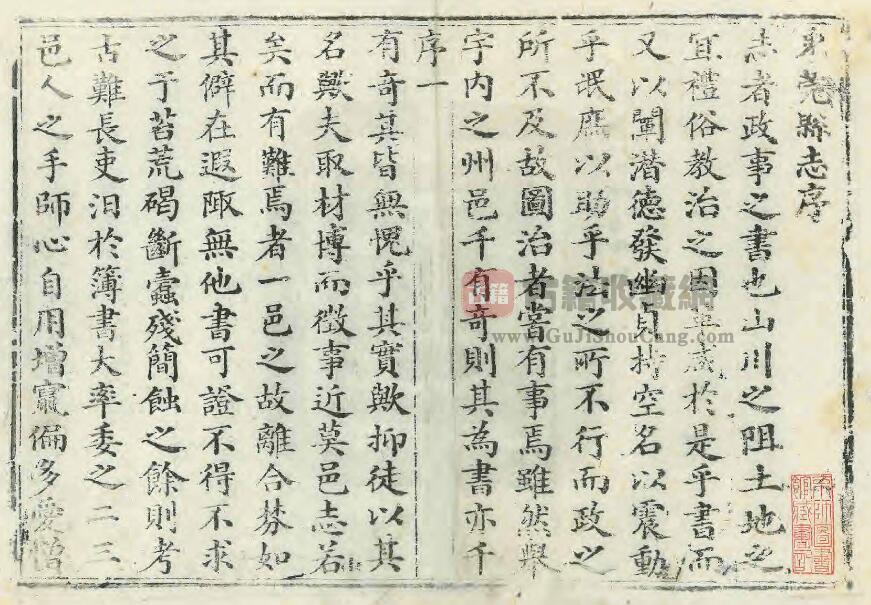 東莞縣志序
志者政事之書也山川之阻土地之
宜禮俗教治之因革咸於是乎書而
又以闡潛德發幽貞揭空名以震動
乎氓庶以助乎法之所不行而政之
所不及故圖治者嘗有事焉雖然舉
宇內之州邑千有奇則其為書亦千
序一
有奇其皆無愧乎其實歟抑徒以其
名歟夫取材博而徵事近莫邑志若
矣而有難焉者一邑之故離合棼如
其僻在遐陬無他書可證不得不求
之于苔荒碣斷蠹殘簡蝕之餘則考
古難長吏汨於簿書大率委之二三
邑人之手師心自用增竄偏多愛憎
古籍
古籍收藏網
www.GuJiShouCang.com